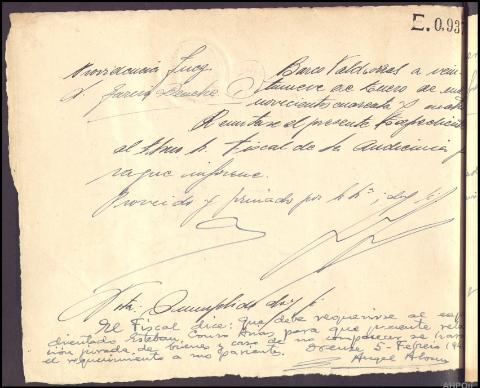 E.0.93
Providencia Juez Barco Valdeorras a vein
S. García Sánche tinueve de Enero de mil
novecientos cuarenta y
Remítase el presente Expediente
al Ilmo Sr. Fiscal de la Audiencia p
ra que informe.
Proveído y firmado por S Sª; doy fe.
Nota: Cumplido doy fe
El Fiscal dice: que debe requerirse al exp
dientado Esteban Arias para que presente rela
ción jurada de bienes y caso de no comparecer se hará
el requerimiento a un pariente. Orense 5 - Febrero 194
Angel Alonso
AHPOu